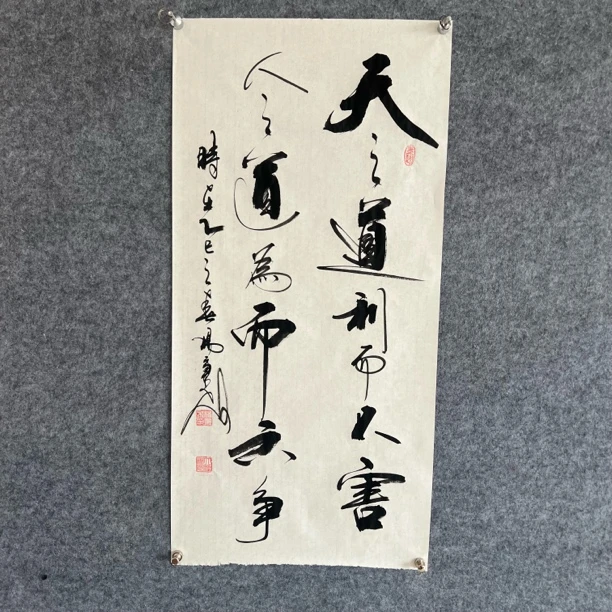 天之道利而不害
人之道為而不争
時在乙巳之春